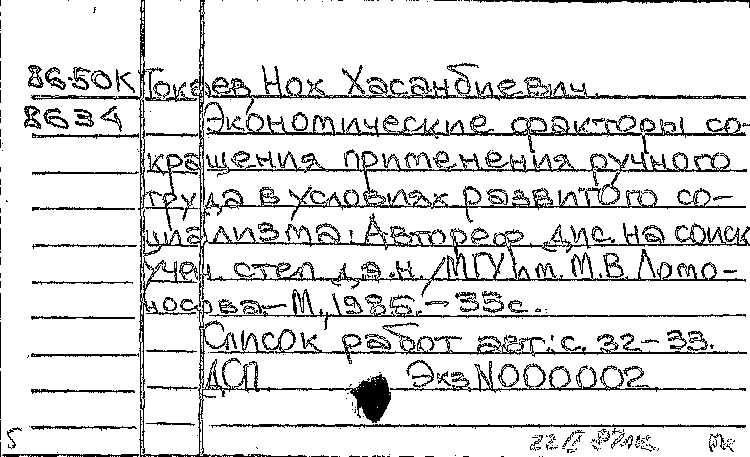 86-50К Токаев Нох Хасанбиевич.
8634 Экономические факторы со-
кращения применения ручного
труда в условиях развитого со-
циализма: Автореф. дис. на соиск.
учен. степ. д.э.н. / МГУ им. М.В. Ломо-
носова. – М., 1985. – 33с.
Список работ авт.: с. 32–33.
ДСП Экз N000002
5